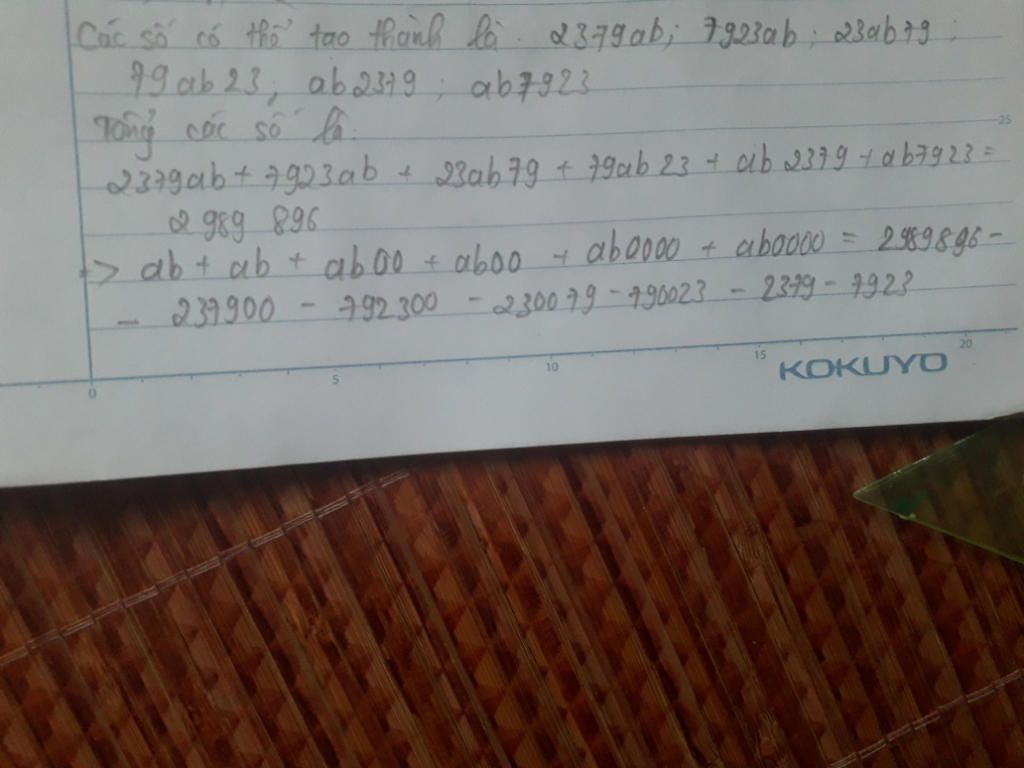 Các số có thể tạo thành là. 2379ab; 7923ab; 23ab79;
79ab23; ab2379; ab7923
Tổng các số là.
2379ab + 7923ab + 23ab79 + 79ab23 + ab2379 + ab7923 =
2989 896
-> ab + ab + ab00 + ab00 + ab0000 + ab0000 = 2989896 -
- 237900 - 792300 - 230079 - 790023 - 2379 - 7923
25
0 5 10 15 20
KOKUYO